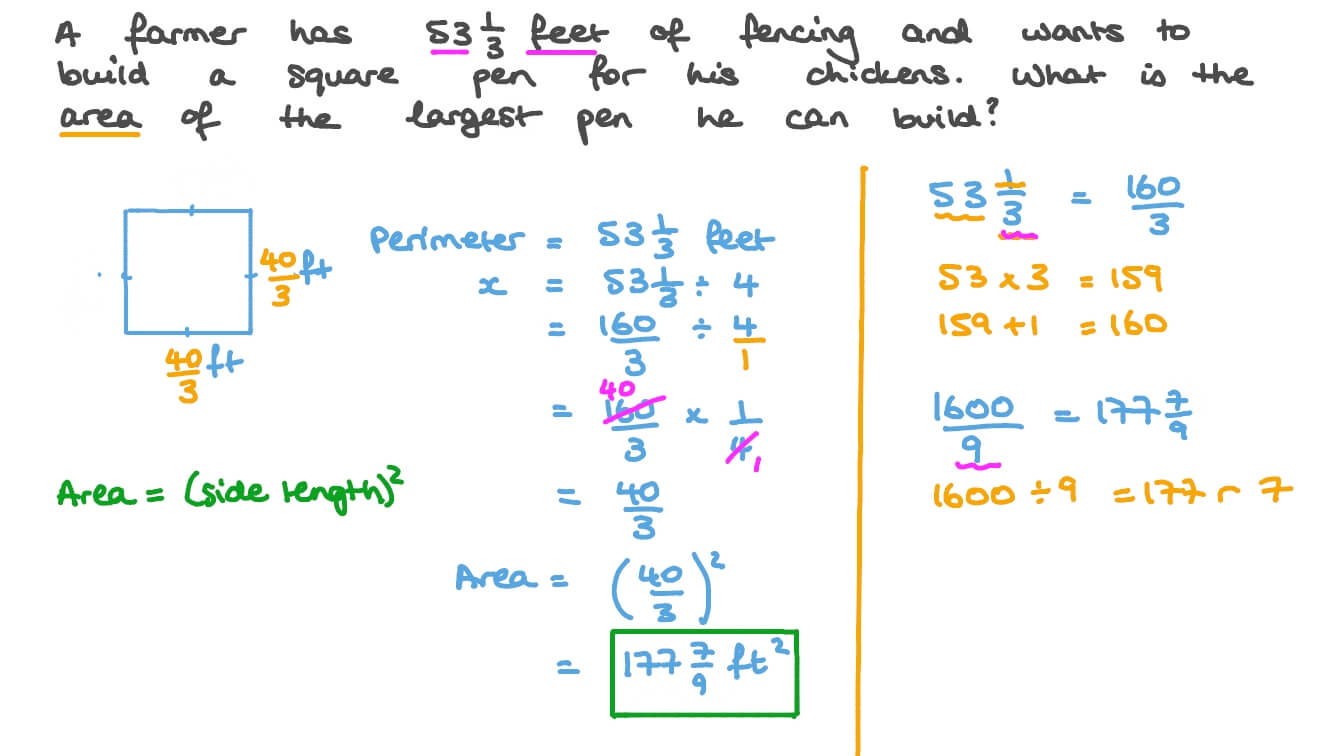 A farmer has 53 1/3 feet of fencing and wants to
build a square pen for his chickens. What is the
area of the largest pen he can build?
40/3 ft
40/3 ft
Area = (side length)²
Perimeter = 53 1/3 feet
x = 53 1/3 ÷ 4
= 160/3 ÷ 4/1
40
= 160/3 x 1/4 1
= 40/3
Area = (40/3)²
= 177 7/9 ft²
53 1/3 = 160/3
53 x 3 = 159
159 + 1 = 160
1600/9 = 177 7/9
1600 ÷ 9 = 177 r 7